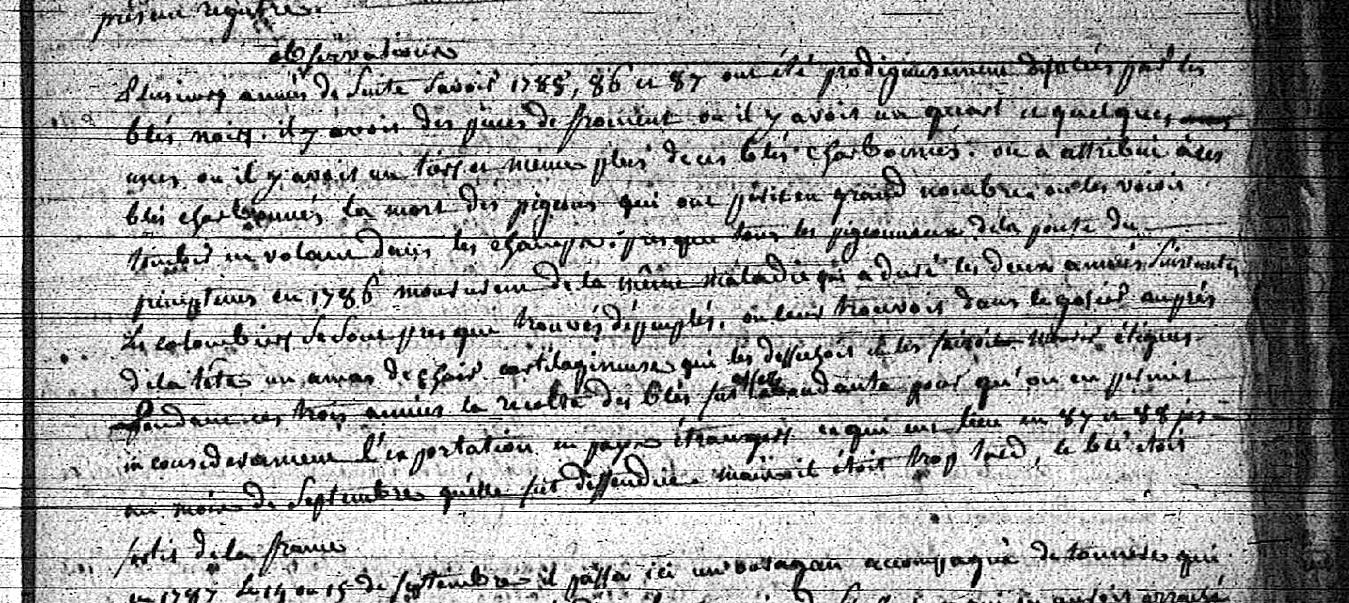 présent registre.
observations
Plusieurs années de suite savoir 1785, 86 et 87 ont été prodigieusement par les
blés noirs. il y avoit des pièces de froment ou il y avoit un quart et quelques
unes ou il y avoit un tiers et même plus de ces blés charbonnés. on a attribué à ces
blés charbonnés la mort des pigeons qui ont péri en grand nombre. on les voioit
tomber en volant dans les champs. presque tous les pigeonneaux de la ponte du
printems en 1786 moururent de la même maladie qui a duré les deux années suivantes
les colombiers se sont presque trouvés dépeuplés. on leur trouvoit dans le gosier auprès
de la tête un amas de chair cartilagineuse qui les dessechoit et les faisoit mourir étiques
Pendant ces trois années la recolte des blés fut assez abondante pour qu'on en permit
inconsiderément l'exportation en pays étrangers ce qui eut lieu en 87 et 88 jus-
au mois de septembre qu'elle fut deffendue mais il étoit trop tard, le blé étoit
sorti de la france
en 1787 le 14 ou 15 de septembre il passa ici un ouragan accompagné de tonnerre qui